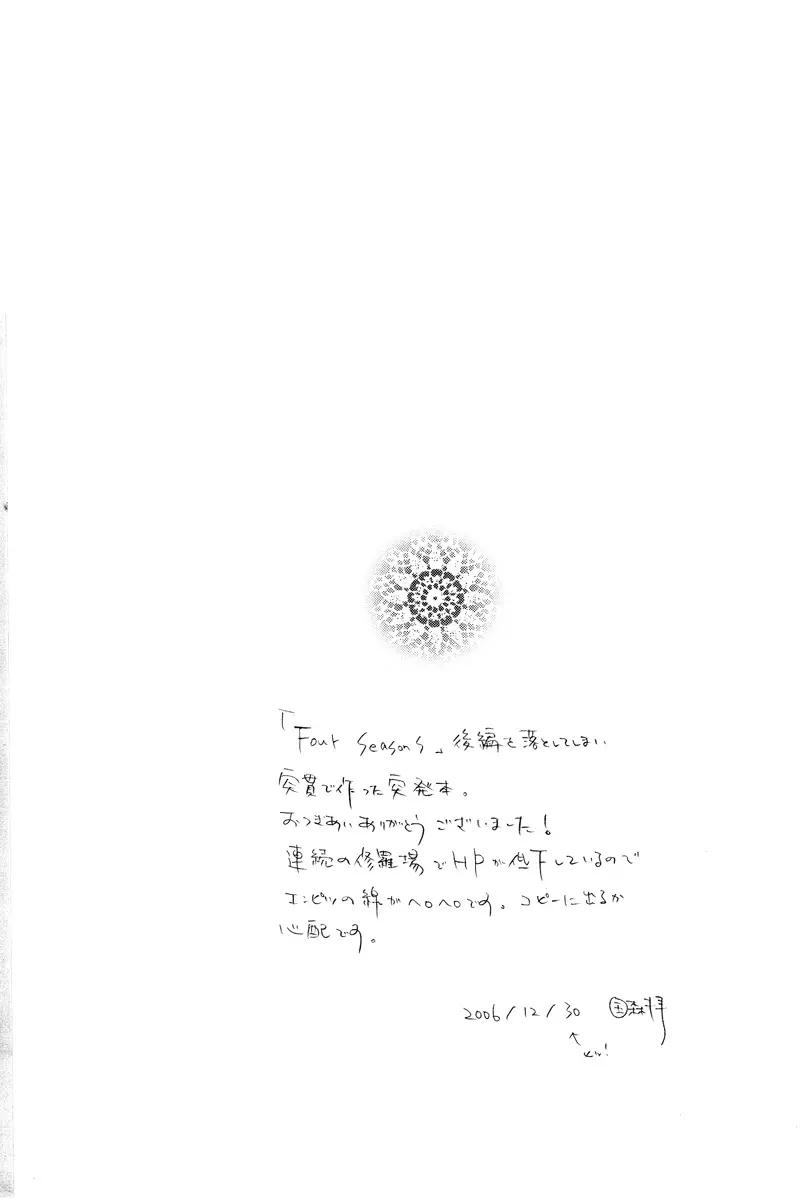 「Four Seasons」後編を落としてしまい
突貫で作った突発本。
おつきあいありがとうございました!
連続の修羅場でHPが低下しているので
エンピツの線がヘロヘロです。コピーに出るか
心配です。
2006/12/30 国森拝
↑